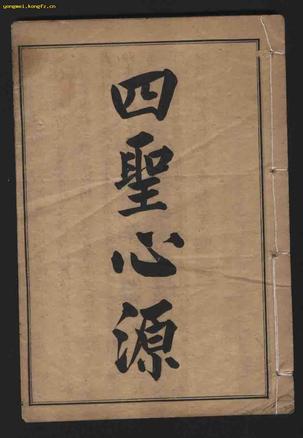 yongwei.kongfz.cn
四聖心源